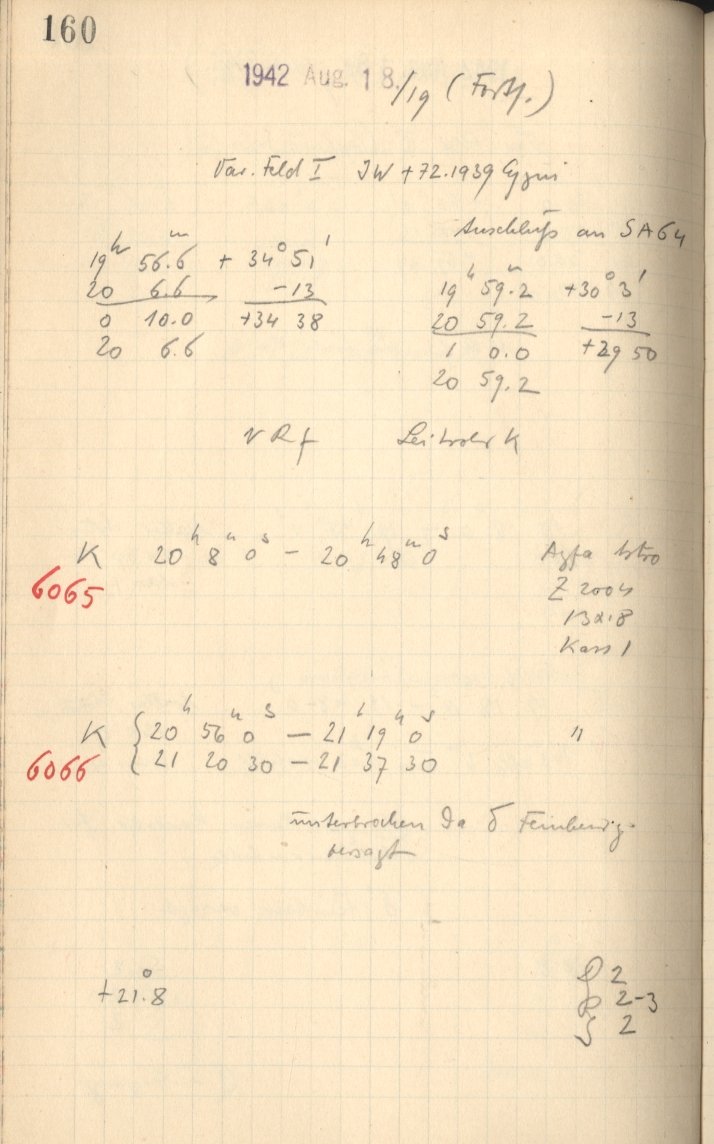 160
1942 Aug. 18./19 (Forts.)
Var. Feld I JW + 72.1939 Cygni
Anschluß an SA64
19h 56.m6 + 34° 51'
20 6.6 -13
0 10.0 +34 38
20 6.6
19h 59.m2 +30° 3'
20 59.2 -13
1 0.0 +29 50
20 59.2
v R f Leitrohr K
K 20h 8m 0s - 20h 48m 0s Agfa Astro
6065
Z 2004
13x18
Kass 1
K { 20h 56m 0s - 21h 19m 0s "
6066 21 20 30 - 21 37 30
unterbrochen da δ Feinbewg.
versagt
+21.°8
D 2
R 2-3
S 2